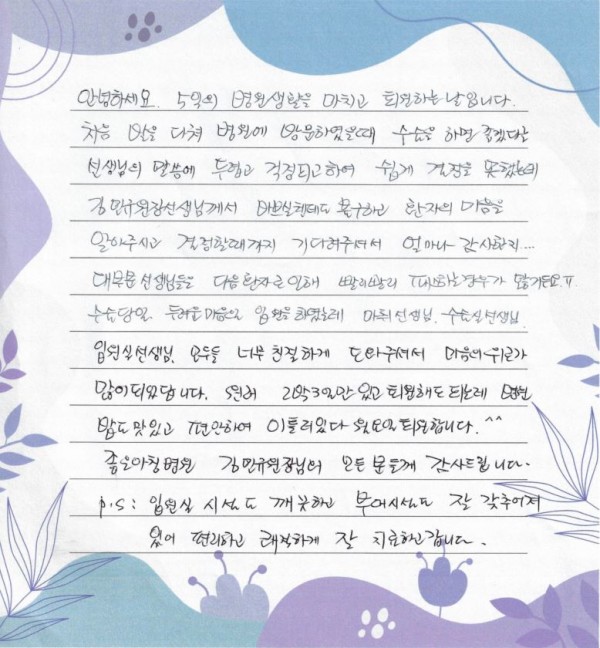 안녕하세요. 5일의 병원생활을 마치고 퇴원하는날입니다.
처음 발을 다쳐 병원에 방문하였을때 수술을 하면 좋겠다는
선생님의 말씀에 두렵고 걱정되고하여 쉽게 결정을 못했는데
김민규원장선생님께서 바쁘실텐데도 불구하고 환자의 마음을
알아주시고 결정할때까지 기다려주셔서 얼마나 감사한지....
대부분 선생님들은 다음환자로 인해 빨리빨리 경우가 많거든요.ㅠ
수술당일. 두려운마음으로 입원을 하였는데 마취선생님. 수술실선생님.
입원실선생님. 모두들 너무 친절하게 도와주셔서 마음의 위로가
많이되었답니다. 원래 2박3일만 있고 퇴원해도 되는데 병원
밥도 맛있고 편안하여 이틀더있다 월요일퇴원합니다. ^^
좋은아침병원 김민규원장님외 모든 분들께 감사드립니다.
p.s : 입원실 시설도 깨끗하고 부대시설도 잘 갖추어져
있어 편리하고 쾌적하게 잘 치료하고갑니다.